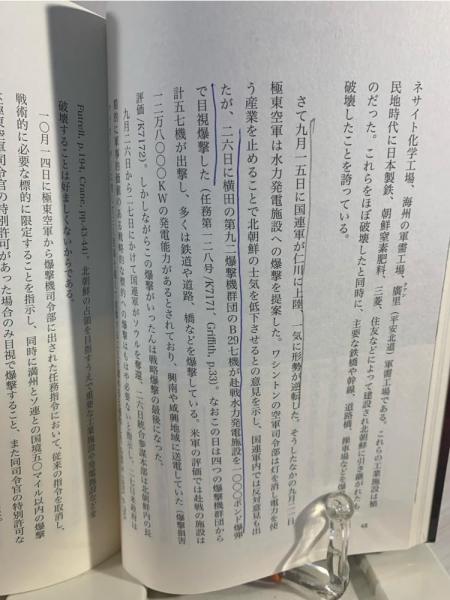 ネサイト化学工場、海州の軍需工場、廣里（平安北道）軍需工場である。これらの工業施設は植
民地時代に日本製鉄、朝鮮窒素肥料、三菱、住友などによって建設され北朝鮮に引き継がれたも
のだった。これらをほぼ破壊したと同時に、主要な鉄橋や幹線、道路橋、操車場などを爆
破壊したことを誇っている。
さて九月一五日に国連軍が仁川に上陸、一気に形勢が逆転した。そうしたなかの九月二一日
極東空軍は水力発電施設への爆撃を提案した。ワシントンの空軍司令部は灯を消し電力を使
う産業を止めることで北朝鮮の士気を低下させるとの意見を示し、国連軍内では反対意見も出
たが、二六日に横田の第九二爆撃機群団のB29七機が赴戦水力発電施設を一〇〇〇ポンド爆弾
で目視爆撃した（任務第一二八号/K7171、Griffith, p.33）。なおこの日は四つの爆撃機群団から
計五七機が出撃し、多くは鉄道や道路、橋などを爆撃している。米軍の評価では赴戦の施設は
一二万八〇〇〇KWの発電能力があるとされており、興南や咸興地域に送電していた（爆撃損害
評価/K7172）。しかしながらこの爆撃がいったんは戦略爆撃の最後になった。
九月二六日から二七日にかけて国連軍がソウルを奪還、二六日統合参謀本部は北朝鮮内の長
期的に軍事的価値のある戦略的な標的への爆撃にもはや必要ないと指示し、二七日米政府は
Futrell, p.194, Crane, pp.43-44）、北朝鮮の占領を目指すうえで重要な工業施設や発電施設などを
破壊することは好ましくないからである。
一〇月一四日に極東空軍から爆撃機司令部に出された任務指令において、従来の指令を取消し、
戦術的に必要な標的に限定することを指示し、同時に満州とソ連との国境五〇マイル以内の爆撃
は極東空軍司令官の特別許可があった場合のみ目視で爆撃すること、また同司令官の特別許可な
48